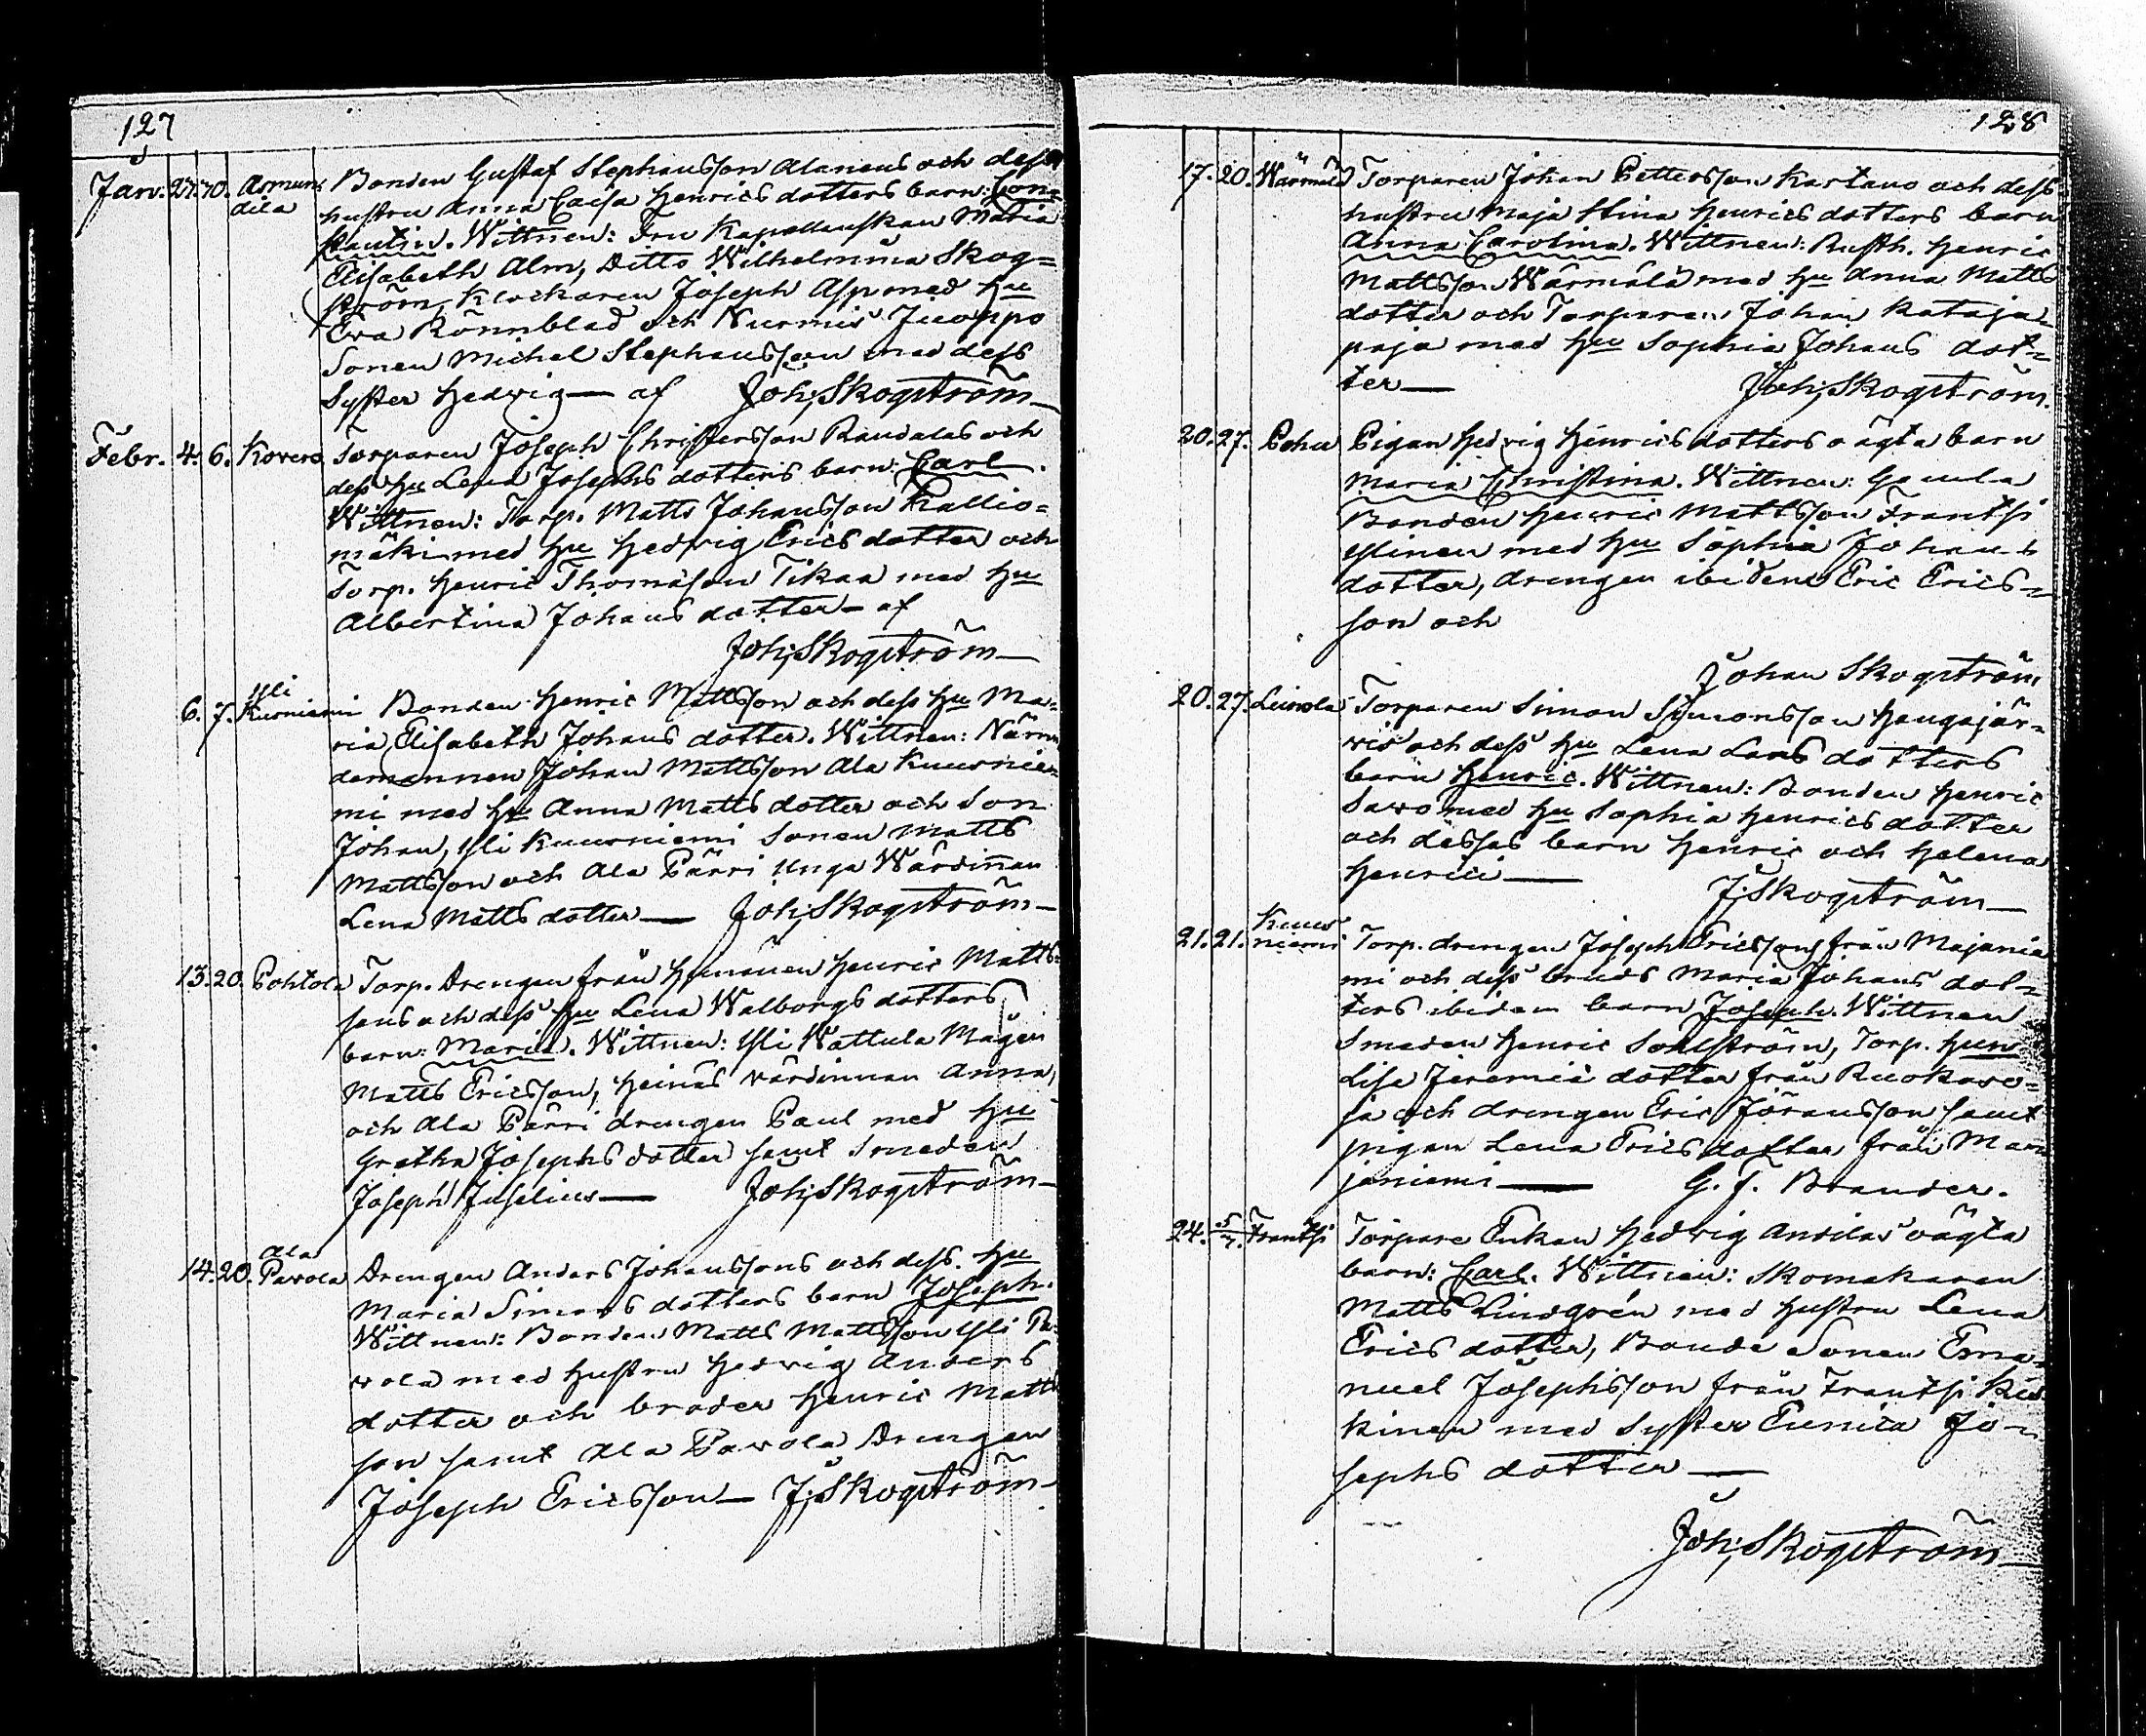 127
Jan. 27. 30. Asmun
dila
Bonden Gustaf Stephansson Alanens och dess
hustru Anna Caisa Henrics dotters barn: Con=
stantin. Wittnen: Fru Kapellanskan Maria
Elisabeth Alm, Ditto Wilhelmina Skog=
ström, Klockaren Joseph Asp med hu
Eva Rönnblad och Nurmis Juoppo
Sonen Michel Stephansson med dess
Syster Hedvig — af Joh; Skogström—
Febr. 4. 6. Kovero Torparen Joseph Christersson Randalas och
dess hu Lena Josephs dotters barn: Carl.
Wittnen: Torp. Matts Johansson Kallio=
mäki med hu Hedvig Erics dotter och
Torp. Henric Thomasson Tikaa med hu
Albertina Johans dotter — af
Joh; Skogström—
6. 7. Yli
Kusniemi Bonden Henric Mattsson och dess hu Ma=
ria Elisabeth Johans dotter. Wittnen: Näm
demannen Johan Mattsson Ala Kuusnie=
mi med hu Anna Matts dotter och Son
Johan, Yli Kuusniemi Sonen Matts
Mattsson och Ala Pärri unga Wärdinnan
Lena Matts dotter — Joh; Skogström—
13. 20. Pohtola Torp. Drengen från Henric Matts=
sons och dess hu Lena Walborgs dotters
barn: Maria. Wittnen: Yli Wattula Mågen
Matts Ericsson, Heinäs värdinnan Anna,
och Ala Pärri drengen Paul med hu
Gretha Josephs dotter samt Smeden
Joseph Juselius — Joh; Skogström—
14. 20. Ala
Pavola Drengen Anders Johanssons och dess hu
Maria Simons dotters barn Joseph.
Wittnen: Bonden Matts Mattsson Yli Pa=
vola med hustru Hedvig Anders
dotter och broder Henric Matts
son samt Ala Pavola Drengen
Joseph Ericsson — J; Skogström—
128
17. 20. Wärmälä Torparen Johan Pettersson Kartano och dess
hustru Maja Stina Henrics dotters barn
Anna Carolina. Wittnen: Rusth. Henric
Mattsson Wärmälä med hu Anna Matts
dotter och Torparen Johan Kataja=
paja med hu Sophia Johans dot=
ter — Joh; Skogström.
20. 27. Pohu Pigan Hedvig Henrics dotters oägta barn
Maria Christina. Wittnen: Gamla
Bonden Henric Mattsson Frantsi
Ylinen med hu Sophia Johans
dotter, drengen ibidem Eric Erics=
son och
Johan Skogström
20. 27. Leinola Torparen Simon Simonsson Haugajär=
vis och dess hu Lena Lars dotters
barn Henric. Wittnen: Bonden Henric
Savo med hu Sophia Henrics dotter
och dessas barn Henric och Helena
Henrici — J; Skogström—
21. 21. Kuus
niemi Torp. drengen Joseph Ericssons från Majania
mi och dess bruds Maria Johans dot=
ters ibidem barn Joseph. Wittnen
Smeden Henric Sohlström, Torp. hun
Lisa Jeremie dotter från Ruokaso=
ja och drengen Eric Jöransson samt
pigan Lena Erics dotter från Mar
janiemi — G. F. Brander.
24. 5/7. Frantsi Torpare Enkan Hedvig Andilas oägta
barn: Carl. Wittnen: Skomakaren
Matts Lindgrén med hustru Lena
Erics dotter, Bonde Sonen Ema=
nuel Josephsson från Frantsi Kes
kinen med Syster Eunica Jo=
sephs dotter —
Joh; Skogström—